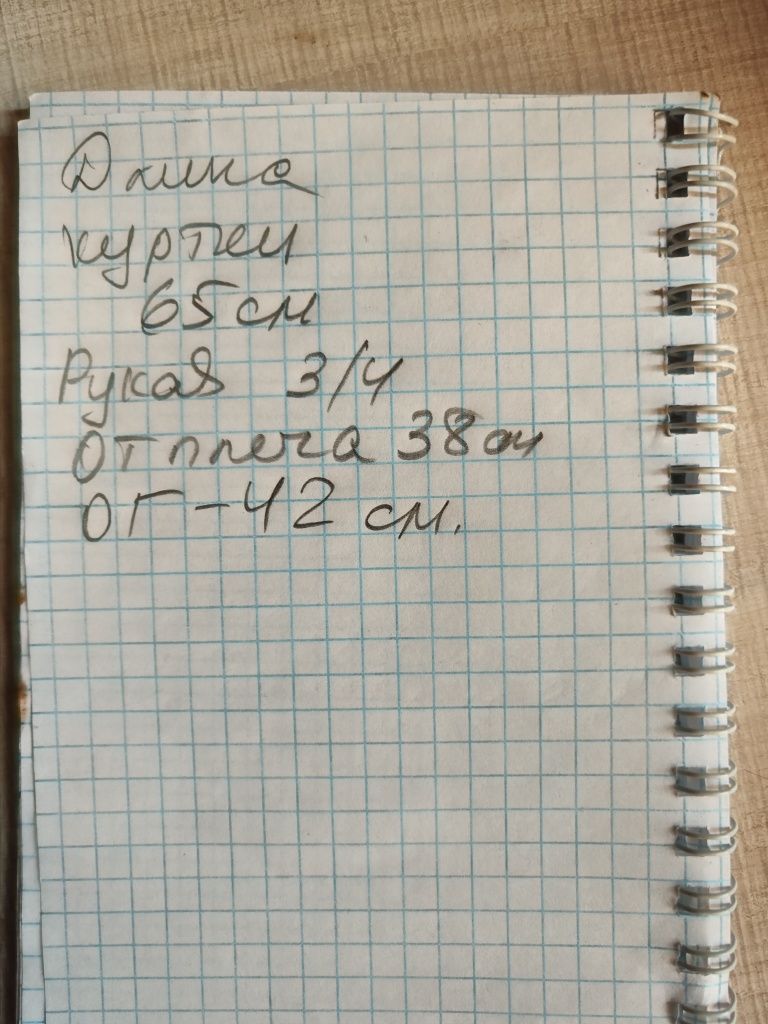 Длина
куртки
65 см
Рукав 3/4
От плеча 38 см
ОГ - 42 см.